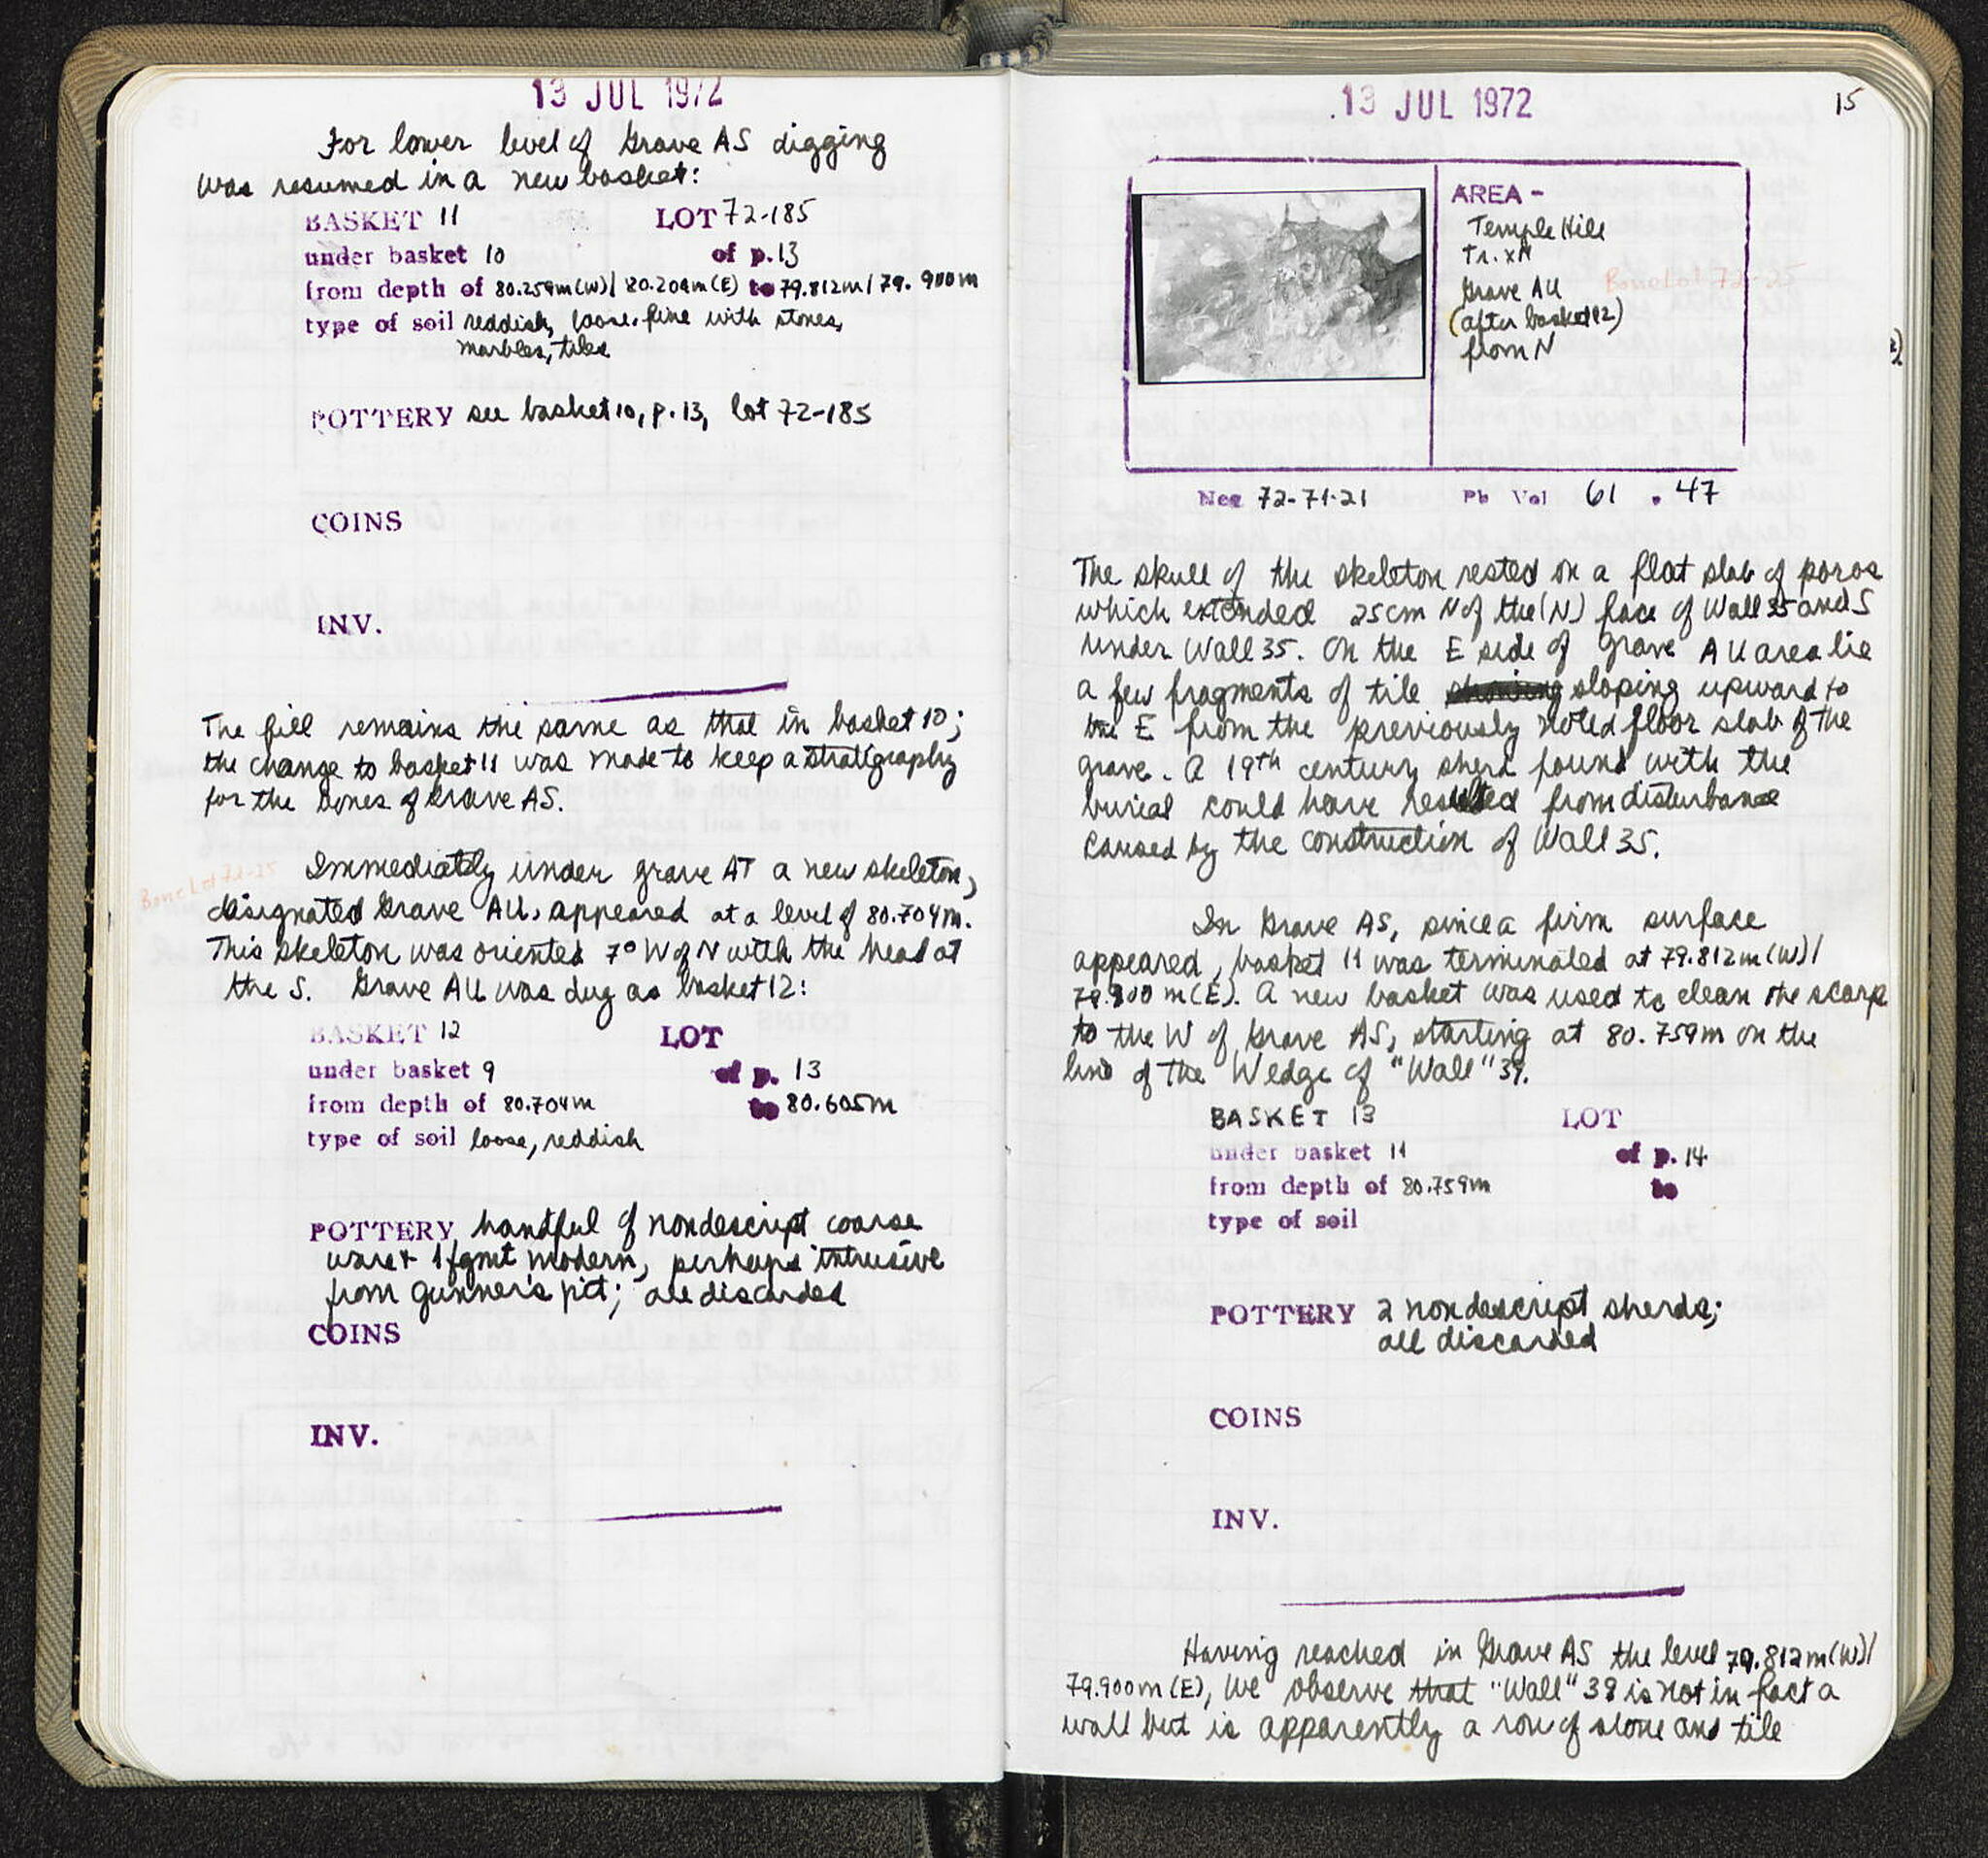 13 JUL 1972
For lower level of Grave AS digging
was resumed in a new basket:
BASKET 11 LOT 72-185
under basket 10 of p. 13
from depth of 80.259m(W)/ 80.204m(E) to 79.812m/ 79.900m
type of soil reddish, loose, fine with stones,
marbles, tiles
POTTERY see basket 10, p. 13, lot 72-185
COINS
INV.
The fill remains the same as that in basket 10;
the change to basket 11 was made to keep a stratigraphy
for the bones of Grave AS.
Bone Lot 72-25
Immediately under grave AT a new skeleton,
designated Grave AU, appeared at a level of 80.704m.
This skeleton was oriented 7° W of N with the head at
the S. Grave AU was dug as basket 12:
BASKET 12 LOT
under basket 9 of p. 13
from depth of 80.704m to 80.605m
type of soil loose, reddish
POTTERY handful of nondescript coarse
ware + 1 fgmt modern, perhaps intrusive
from gunner's pit; all discarded
COINS
INV.
13 JUL 1972
15
AREA -
Temple Hill
Tr. XN
Grave AU
Bone Lot 72-25
(after basket 12)
from N
Neg 72-71-21 Ph Vol 61 . 47
The skull of the skeleton rested on a flat slab of poros
which extended 25cm N of the (N) face of Wall 35 and S
under Wall 35. On the E side of Grave AU area lie
a few fragments of tile sloping upward to
the E from the previously noted floor slab of the
grave. A 19th century sherd found with the
burial could have resulted from disturbance
caused by the construction of Wall 35.
In Grave AS, since a firm surface
appeared, basket 11 was terminated at 79.812m(W)/
79.900 m(E). A new basket was used to clean the scarp
to the W of Grave AS, starting at 80.759m on the
line of the W edge of "Wall" 39.
BASKET 13 LOT
under basket 11 of p. 14
from depth of 80.759m to
type of soil
POTTERY 2 nondescript sherds;
all discarded
COINS
INV.
Having reached in Grave AS the level 79.812m(W)/
79.900m(E), we observe that "Wall" 39 is not in fact a
wall but is apparently a row of stone and tile